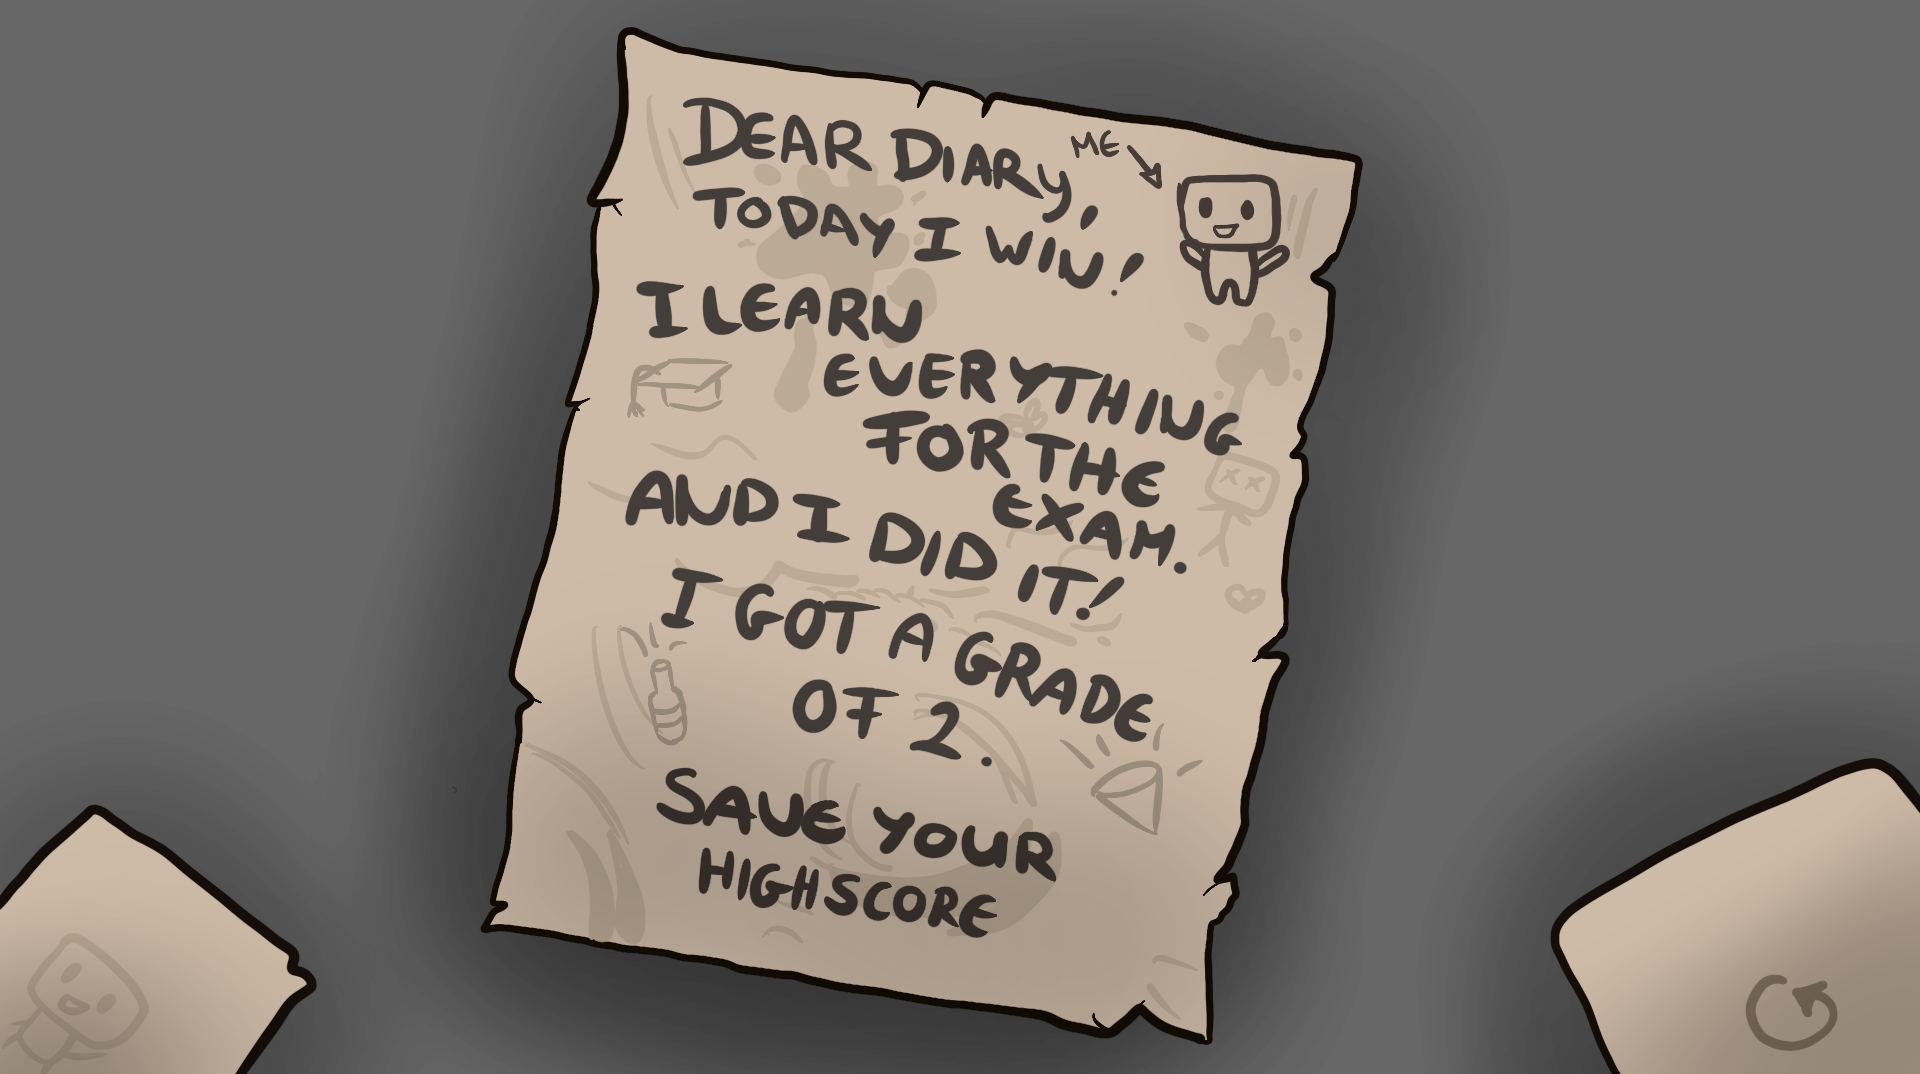 DEAR DIARY,
ME
TODAY I WIN!
I LEARN
EVERYTHING
FOR THE
EXAM.
AND I DID IT!
I GOT A GRADE
OF 2.
SAVE YOUR
HIGHSCORE